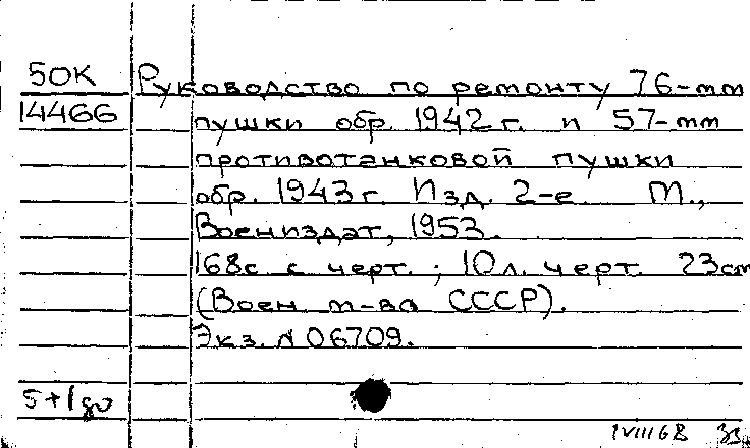 50К
14466
Руководство по ремонту 76-мм
пушки обр. 1942 г. и 57-мм
противотанковой пушки
обр. 1943 г. Изд. 2-е М.,
Воениздат, 1953.
168 с. с черт.; 10 л. черт. 23 см
(Воен. м-во СССР).
Экз. N 06709.
5+1
IVIII68